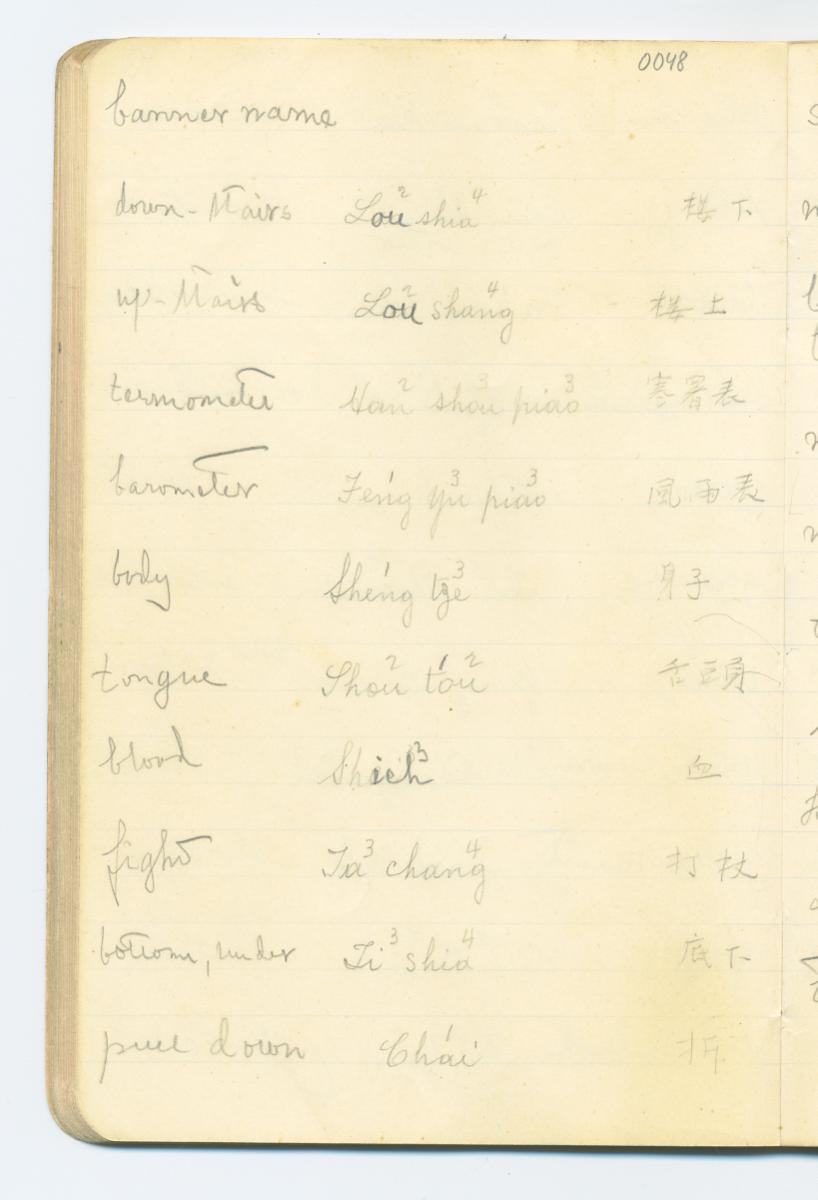 0048
banner name
down-stairs Lou² shia⁴ 楼下
up-stairs Lou² shang⁴ 楼上
termometer Han² shou³ piao³ 寒署表
barometer Feng' yu³ piao³ 風雨表
body Sheng' tze³ 身子
tongue Shou² t'ou² 舌頭
blood Shieh³ 血
fight Ta³ chang⁴ 打杖
bottom, under Ti³ shia⁴ 底下
pull down Ch'ai' 拆